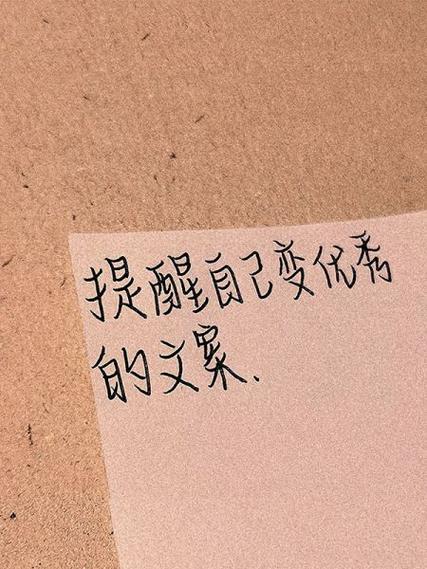 提醒自己变优秀
的文案.